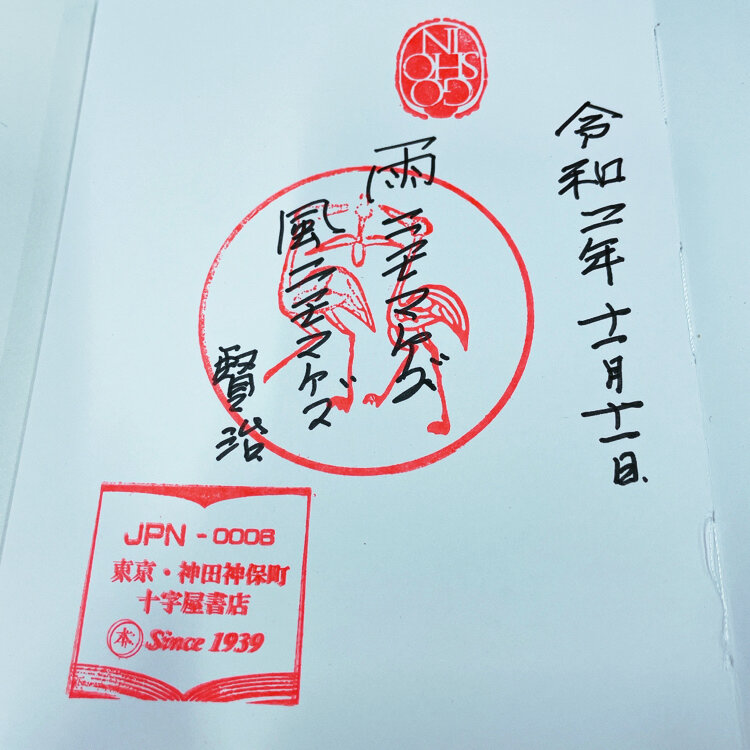 GO
SHO
IN
令和二年 十一月十一日
雨ニモマケズ
風ニモマケズ
賢治
JPN - 0008
東京・神田神保町
十字屋書店
本 Since 1939